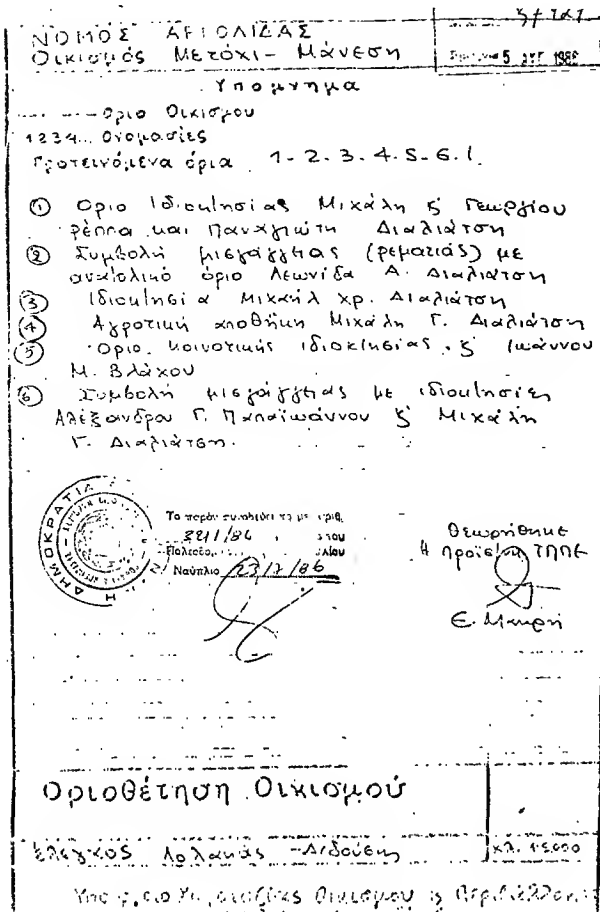 ΝΟΜΟΣ ΑΡΓΟΛΙΔΑΣ
Οικισμός Μετόχι - Μάνεση
5 ΑΥΓ 1986
Υπόμνημα
Οριο Οικισμου
1234... Ονομασίες
Προτεινόμενα όρια 1-2-3-4-5-6-1
① Οριο Ιδιοκτησίας Μιχάλη ς Γεωργίου
ρέππα και Παναγιώτη Διαλιάτση
② Συμβολή μισγάγγειας (ρεματιάς) με
ανατολικό όριο Λεωνίδα Α. Διαλιάτση
③ Ιδιοκτησία Μιχαήλ Χρ. Διαλιάτση
④ Αγροτική αποθήκη Μιχάλη Γ. Διαλιάτση
⑤ Οριο κοινοτικής ιδιοκτησίας ς Ιωάννου
Μ. Βλάχου
⑥ Συμβολή μισγάγγειας με ιδιοκτησίες
Αλέξανδρου Γ. Παπαϊωάννου ς Μιχάλη
Γ. Διαλιάτση.
ΔΗΜΟΚΡΑΤΙΑ
Το παρόν συνοδεύει το με αριθ.
3211/86
Ναύπλιο 23/7/86
Θεωρήθηκε
Η προϊσ/νη ΤΠΠΕ
Ε. Μακρή
Οριοθέτηση Οικισμού
Έλεγχος
κλ. 1:5.000
Οικισμού ς Περιβάλλον